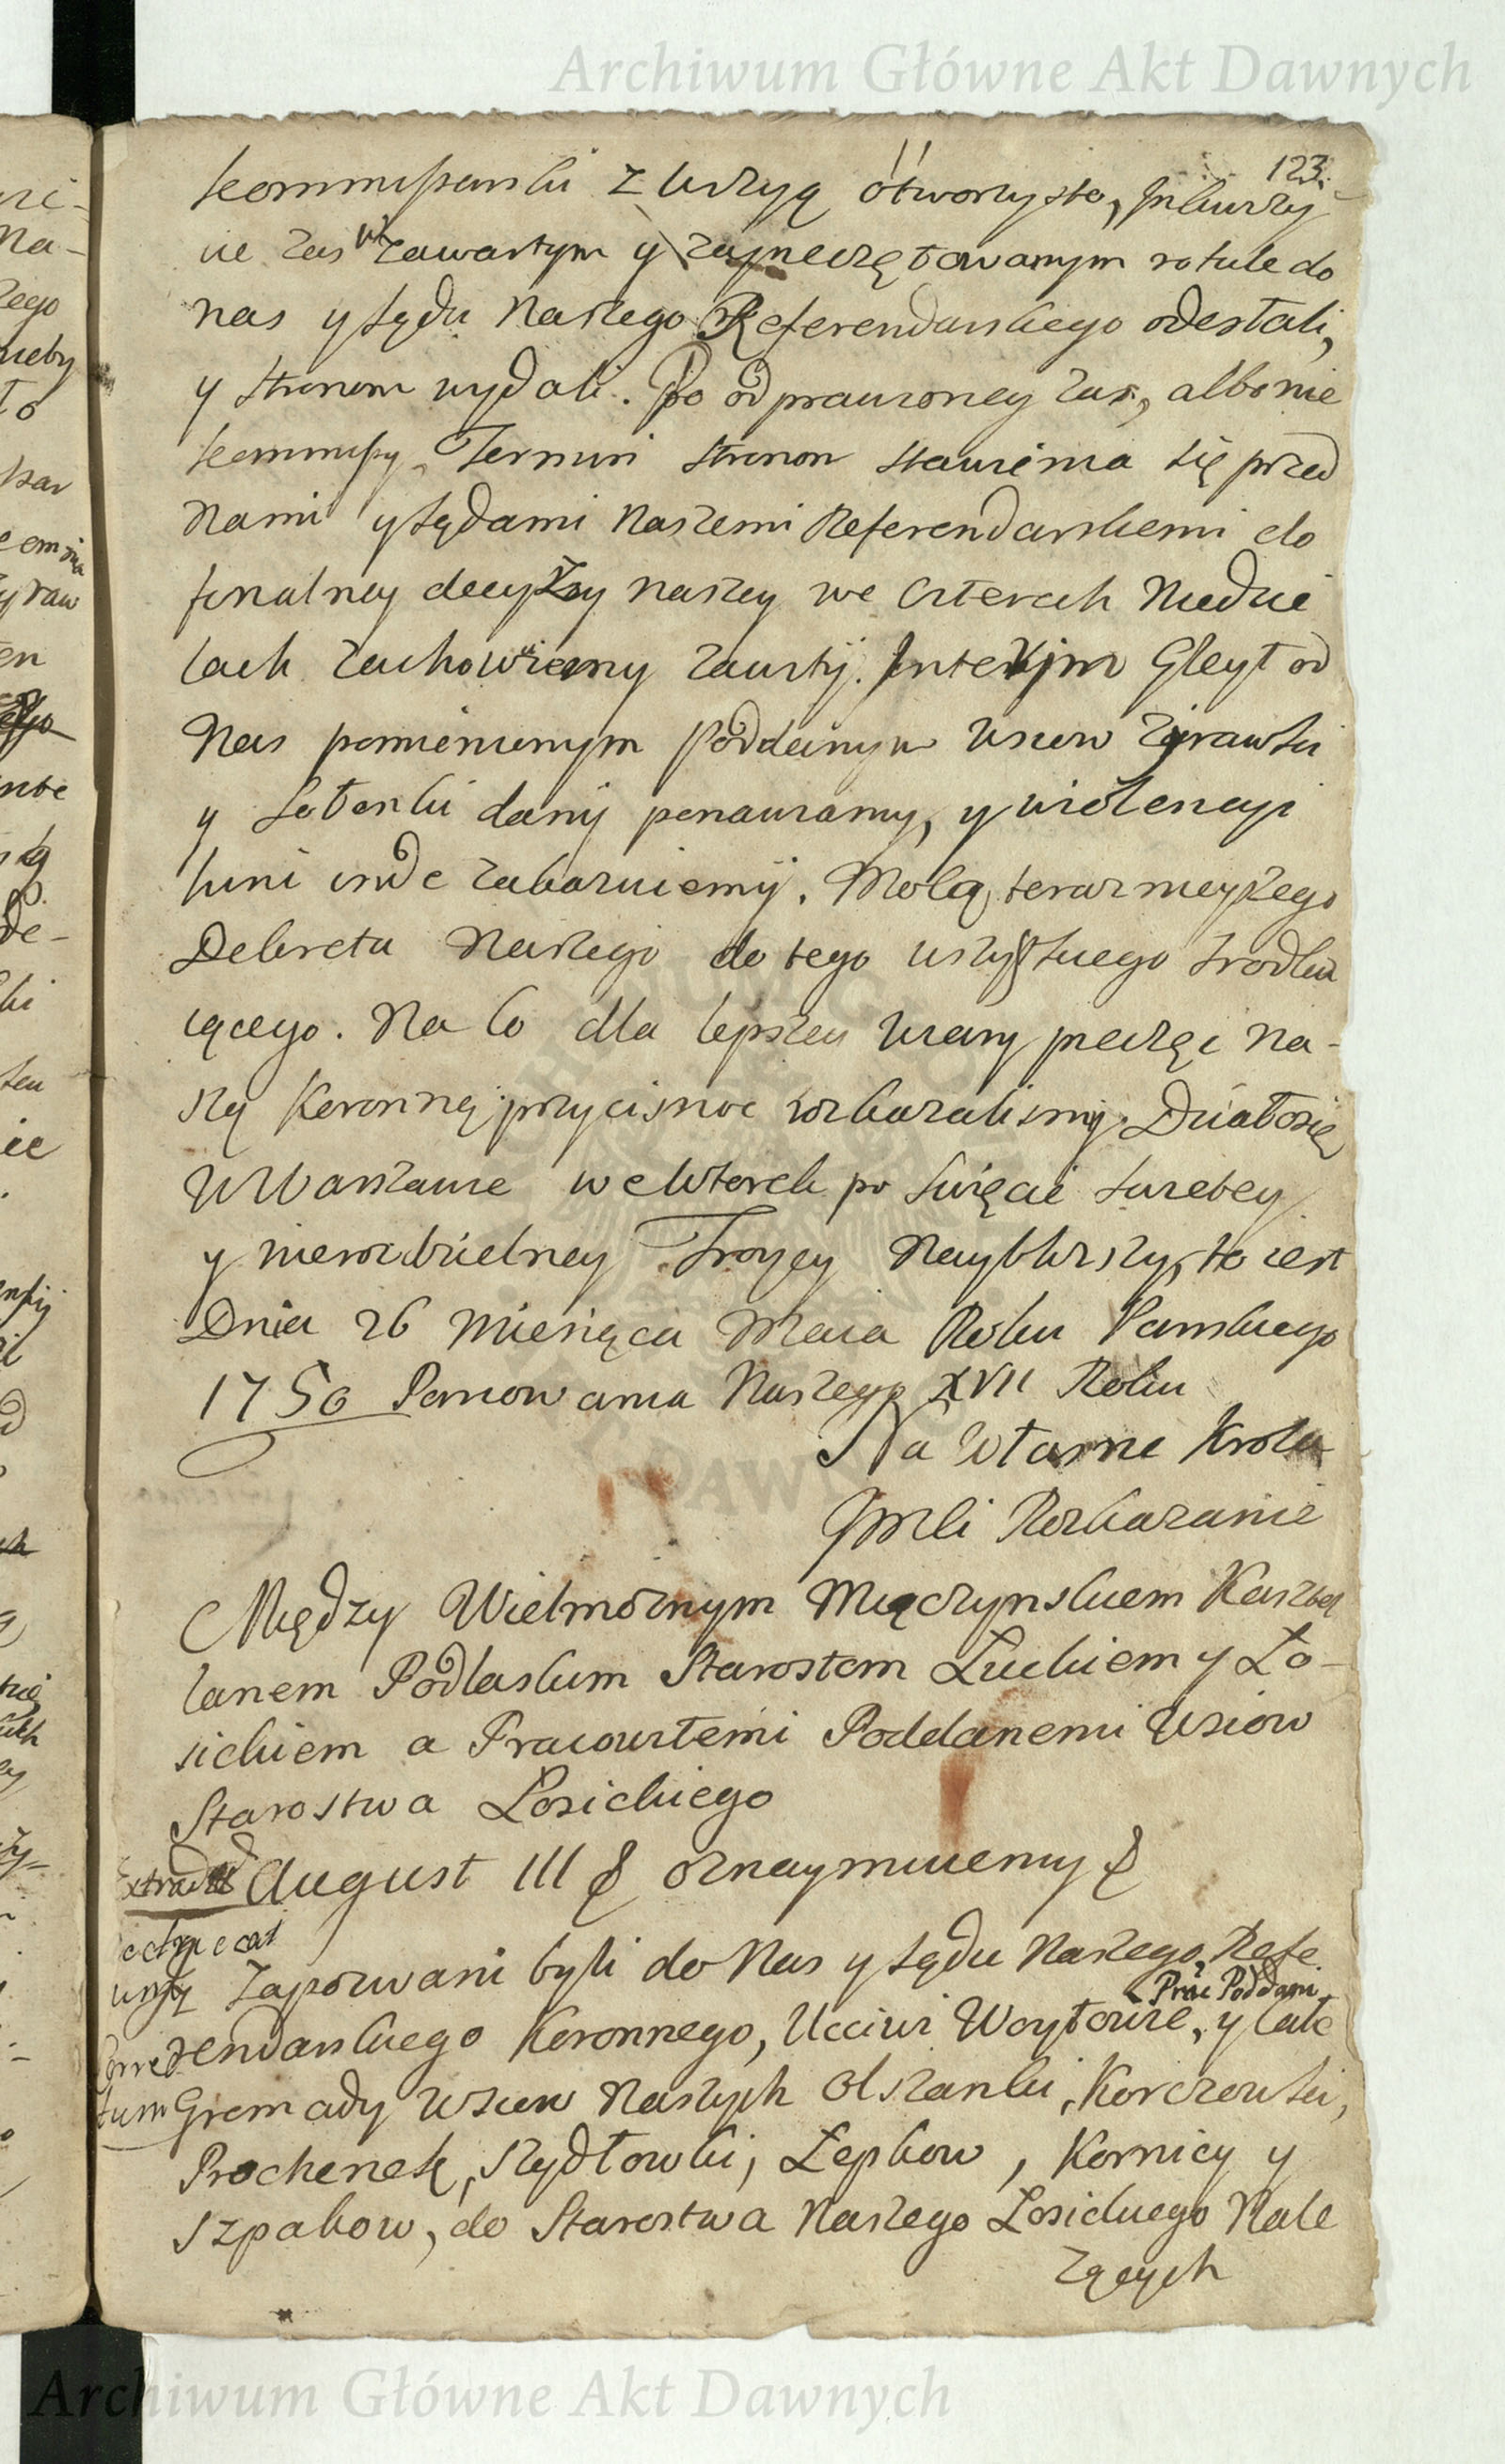 Archiwum Główne Akt Dawnych
123.
kommissarski z wizyą otworzystą, Inkwizy
cie zas w zawartym y zapieczętowanym rotule do
nas y sądu Naszego Referendarskiego odesłali,
y stronom wydali. Po odprawioney zas, albo nie
kommissy, Termin stronom stawienia się przed
Nami y sądami Naszemi Referendarskiemi do
finalney decyzyy naszey we czterech Niedzie
lach zachowuiemy zawity. Interim Gleyt od
Nas pomienionym Poddanym wsiow
y dany ponawiamy, y wiolencyi
inde zakazuiemy. Mocą teraznieyszego
Dekretu Naszego do tego wszystkiego
iącego. Na co dla lepszey wiary pieczęć Na-
szą Koronną przycisnąc rozkazalismy. Działosię
w Warszawie we Wtorek po święcie Swietey
y nierozdzielney Troycy Nayblizszy, to iest
Dnia 26 Miesiąca Maia Roku Panskiego
1750 Panowania Naszego XVII Roku
Na Własne Krola
Jmsci Rozkazanie
Między Wielmoznym Miączynskiem Kasztel
lanem Podlaskim Starostem Łuckiem y Ło-
sickiem a Pracowitemi Poddanemi Wsiow
Starostwa Łosickiego
Extrad August III & oznaymuiemy &
Zapozwani byli do Nas y sądu Naszego Refe
Prac Poddani
rendarskiego Koronnego, Ucciwi Woytowie, y całe
Gromady Wsiow Naszych Olszanki, Korczowki,
Prochenek, Szydłowki, Łepkow, Kornicy y
Szpakow, do Starostwa Naszego Łosickiego Nale
zących
Archiwum Główne Akt Dawnych